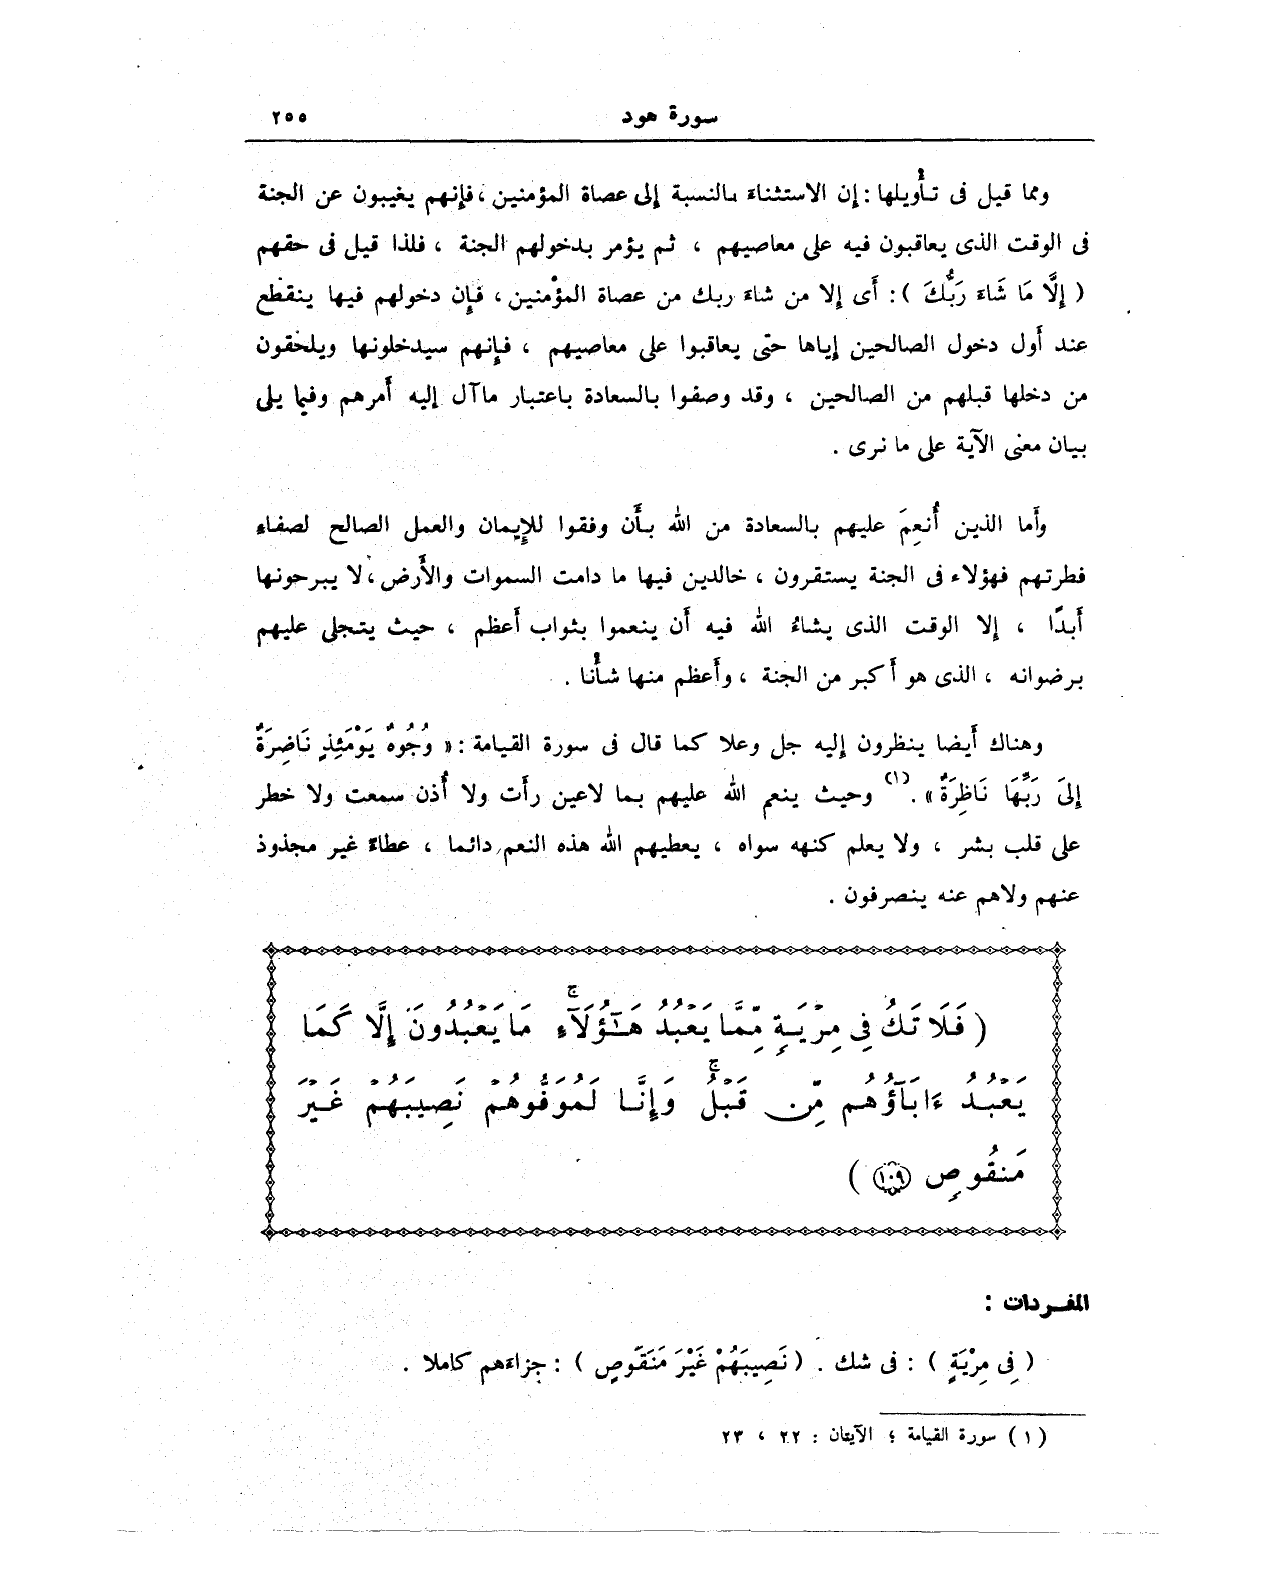 سورة هود
٢٥٥
ومما قيل فى تأويلها : إن الاستثناء بالنسبة إلى عصاة المؤمنين ، فإنهم يغيبون عن الجنة
فى الوقت الذى يعاقبون فيه على معاصيهم ، ثم يؤمر بدخولهم الجنة ، فلذا قيل فى حقهم
( إِلَّا مَا شَاءَ رَبُّكَ ) : أَى إلا من شاءَ ربك من عصاة المؤمنين ، فإن دخولهم فيها ينقطع
عند أول دخول الصالحين إياها حتى يعاقبوا على معاصيهم ، فإنهم سيدخلونها ويلحقون
من دخلها قبلهم من الصالحين ، وقد وصفوا بالسعادة باعتبار ماآل إليه أمرهم وفيما يلى
بيان معنى الآية على ما نرى .
وأما الذين أُنعِمَ عليهم بالسعادة من الله بأن وفقوا للإيمان والعمل الصالح لصفاء
فطرتهم فهؤلاء فى الجنة يستقرون ، خالدين فيها ما دامت السموات والأرض ، لا يبرحونها
أبدًا ، إلا الوقت الذى يشاءُ الله فيه أن ينعموا بثواب أعظم ، حيث يتجلى عليهم
برضوانه ، الذى هو أكبر من الجنة ، وأعظم منها شأْنا .
وهناك أيضا ينظرون إليه جل وعلا كما قال فى سورة القيامة : « وُجُوهٌ يَوْمَئِذٍ نَاضِرَةٌ
إِلَى رَبِّهَا نَاظِرَةٌ » .(١) وحيث ينعم الله عليهم بما لاعين رأت ولا أُذن سمعت ولا خطر
على قلب بشر ، ولا يعلم كنهه سواه ، يعطيهم الله هذه النعم دائما ، عطاءً غير مجذوذ
عنهم ولاهم عنه ينصرفون .
( فَلَا تَكُ فِى مِرْيَةٍ مِّمَّا يَعْبُدُ هَـٰٓؤُلَآءِ ۚ مَا يَعْبُدُونَ إِلَّا كَمَا
يَعْبُدُ ءَابَآؤُهُم مِّن قَبْلُ ۚ وَإِنَّا لَمُوَفُّوهُمْ نَصِيبَهُمْ غَيْرَ
مَنقُوصٍ ١٠٩ )
المفـردات :
( فِى مِرْيَةٍ ) : فى شك . ( نَصِيبَهُمْ غَيْرَ مَنقُوصٍ ) : جزاءهم كاملا .
( ١ ) سورة القيامة ؛ الآيتان : ٢٢ ، ٢٣